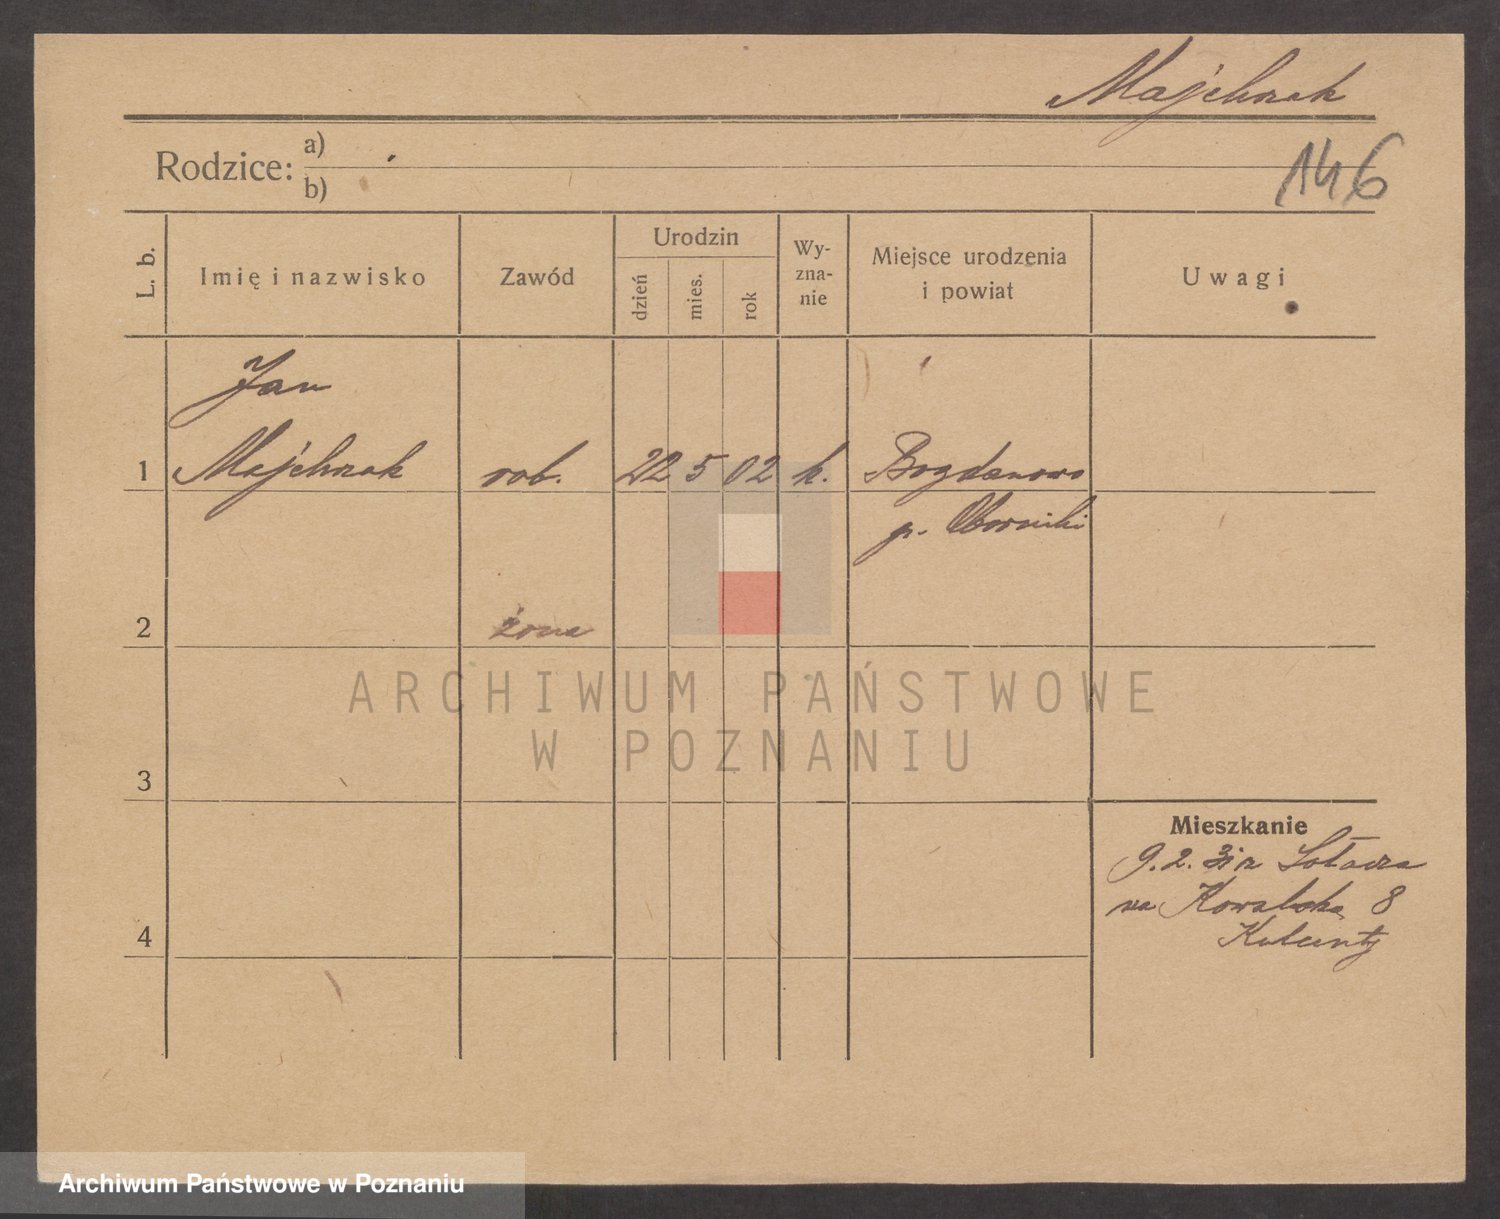 Majchrzak
Rodzice: a)
b)
146
L. b.
Imię i nazwisko
Zawód
Urodzin
dzień
mies.
rok
Wy-
zna-
nie
Miejsce urodzenia
i powiat
Uwagi
Jan
1 Majchrzak rob. 22 5 02 k. Bogdanowo
p. Oborniki
2 żona
ARCHIWUM PAŃSTWOWE
W POZNANIU
3
Mieszkanie
9.2. z Sołacza
na Kowalska 8
4
Archiwum Państwowe w Poznaniu